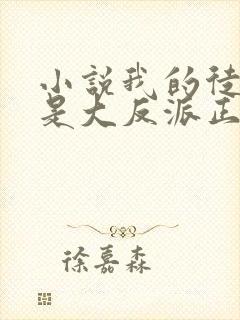 小説我的徒
是大反派正
徐嘉森